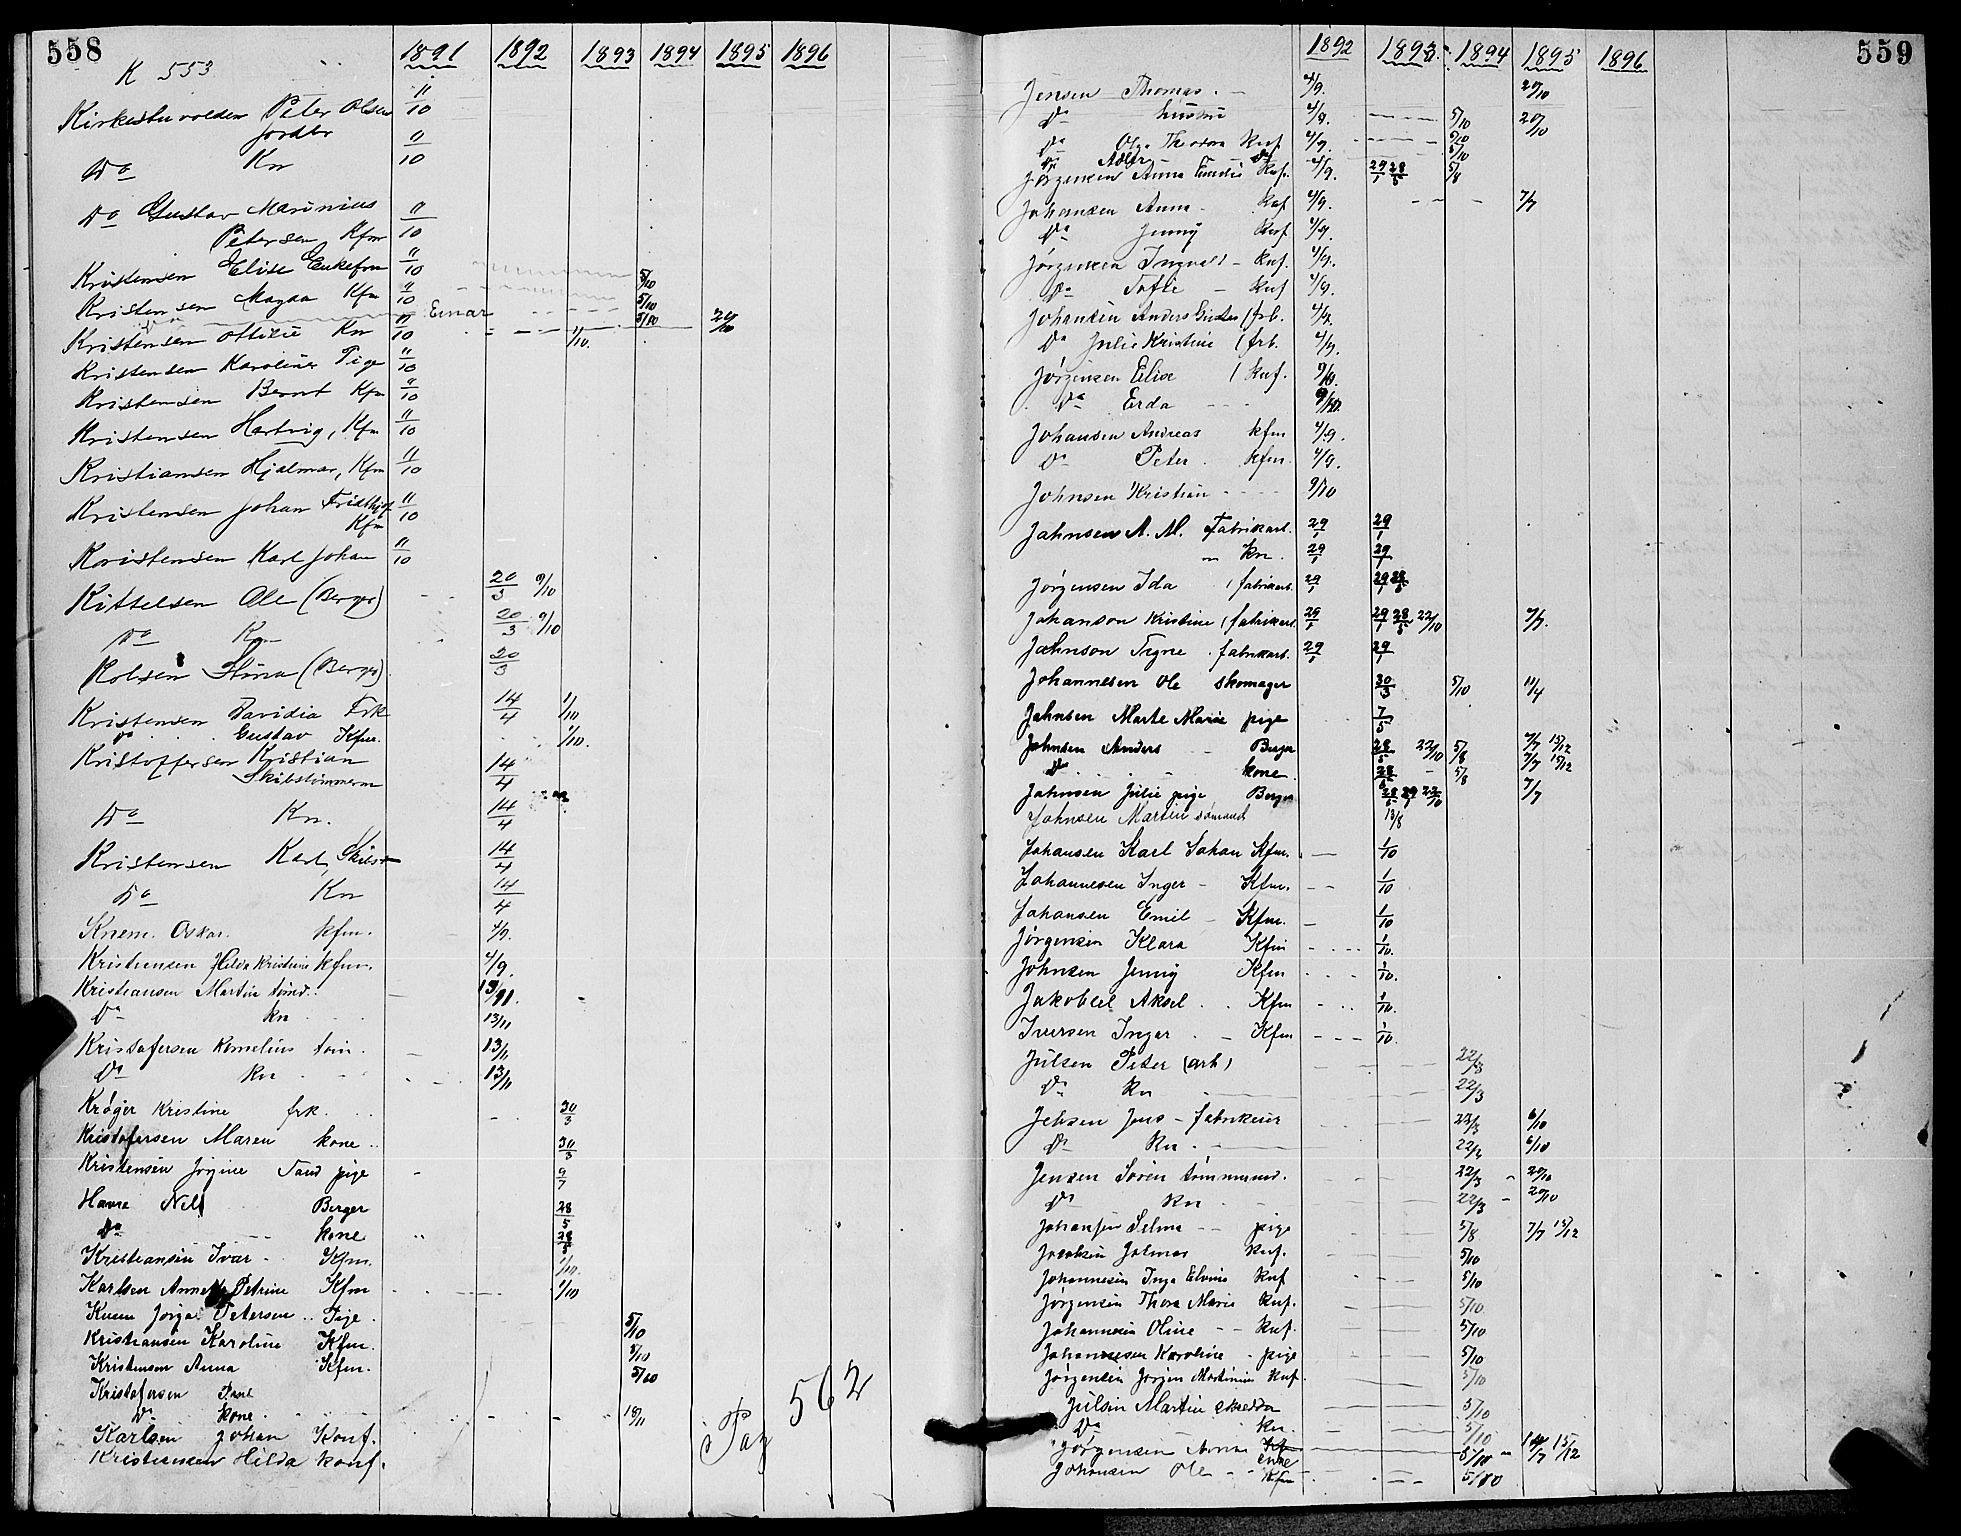 558
K 553
1891 1892 1893 1894 1895 1896
Peter Olsen 11/10
Jordbr
Do Kn 11/10
Do Gustav Marinius 11/10
Petersen Kfm
Kristensen Elise Enkefru 11/10 5/10
Kristensen Magda Kfm 11/10 5/10
Do Einar 5/10 20/10
Kristensen Ottilie Kn 11/10 1/10.
Kristensen Karoline Pige 11/10
Kristensen Bernt Kfm 11/10
Kristensen Hartvig, Kfm 11/10
Kristiansen Hjalmar, Kfm 11/10
Kristensen Johan Fridthjof 11/10
Kfm
Kristensen Karl Johan 11/10
Kittelsen Ole (Berger) 20/3 9/10
Do Kn 20/3 9/10
Stina (Berger) 20/3
Kristensen Davidia Frk 14/4 1/10
Do Gustav Kfm. 1/10.
Kristoffersen Kristian 14/4
Skibstømmerm
Do Kn. 14/4
Kristensen Karl, Skibst 14/4
Do Kn 14/4
Knem. Oskar. kfm. 4/9.
Kristiansen Hilda Kristine kfm. 4/9.
Kristiansen Martin tømd. 13/11.
Do kn 13/11
Kristofersen Kornelius tøm. 13/11
Do kn 13/11
Krøger Kristine frk. 30/3
Kristofersen Maren kone 30/3
Kristensen Jørgine pige 9/7
Nels Berger 28/5
Do kone 28/5
Kristiansen Ivar Kfm. 1/10.
Karlsen Petrine Kfm 1/10
Petersen Pige 5/10
Kristiansen Karoline Kfm. 5/10
Kristensen Anna Kfm. 5/10
Kristofersen
Do kone 18/11
Karlsen Johan Konf.
Kristiansen Hilda konf.
Pag 562
559
1892 1893. 1894 1895 1896
Jensen Thomas. 4/9. 20/10
Do hustru 4/9. 5/10 20/10
Do Olga Theodora Knf 4/9. 5/10
Do Do 5/10
Jørgensen Anna Knf. 4/9. 29/1 28/5 5/8
Johansen Anna Knf 4/9. 7/7
Do Jenny Knf 4/9.
Jørgensen Ingvald Knf. 4/9.
Do Tofte Knf 4/9.
Johansen Anders Gustav (frb. 4/9.
Do Julie Kristine (frb. 4/9.
Jørgensen Elise (Knf. 9/10.
Do Erda 9/10.
Johansen Andreas kfm 4/9.
Do Peter. kfm. 4/9.
Johnsen Kristian 9/10
Jahnsen A. M. Fabrikarb. 29/1 29/1
" Kn. 29/1 29/1
Jørgensen Ida (fabrikarb. 29/1 29/1 28/5
Johanson Kristine (fabrikarb. 29/1 29/1 28/5 22/10 7/7.
Johnson Signe. fabrikarb. 29/1 29/1
Johannesen Ole skomager 30/3 5/10 11/4
Johnsen Marte Marie pige 7/5
Johnsen Anders Berger 28/5 22/10 5/8 7/7 15/12
Do kone 28/5 5/8 7/7 15/12
Johnsen Julie pige Berger 28/5 29/1 22/10 7/7
Johnsen Martin sømand 13/8
Johansen Karl Johan Kfm. 1/10
Johannesen Inger Kfm. 1/10
Johansen Emil Kfm. 1/10
Jørgensen Klara Kfm 1/10.
Johnsen Jenny Kfm 1/10.
Aksel Kfm 1/10.
Iversen Inger Kfm 1/10.
Julsen Peter (arb) 22/3
Do Kn 22/3
Jebsen Jens fabrikeier 22/3 6/10
Do Kn. 22/3 6/10
Jensen Søren tømmermd. 22/3 20/10
Do Kn 22/3 20/10
Johansen Selma pige 5/8 7/7 15/12
Knf. 5/10
Johannesen Inga Knf 5/10
Jørgensen Thora Marie Knf. 5/10
Johannesen Oline Knf. 5/10
Johannesen Karoline pige 5/10
Jørgensen Jørgen Martinius Knf 5/10
Julsen Martin 5/10
Do Kn. 5/10
Jørgensen Anna enke 5/10 15/12
Johansen Ole Kfm 5/10